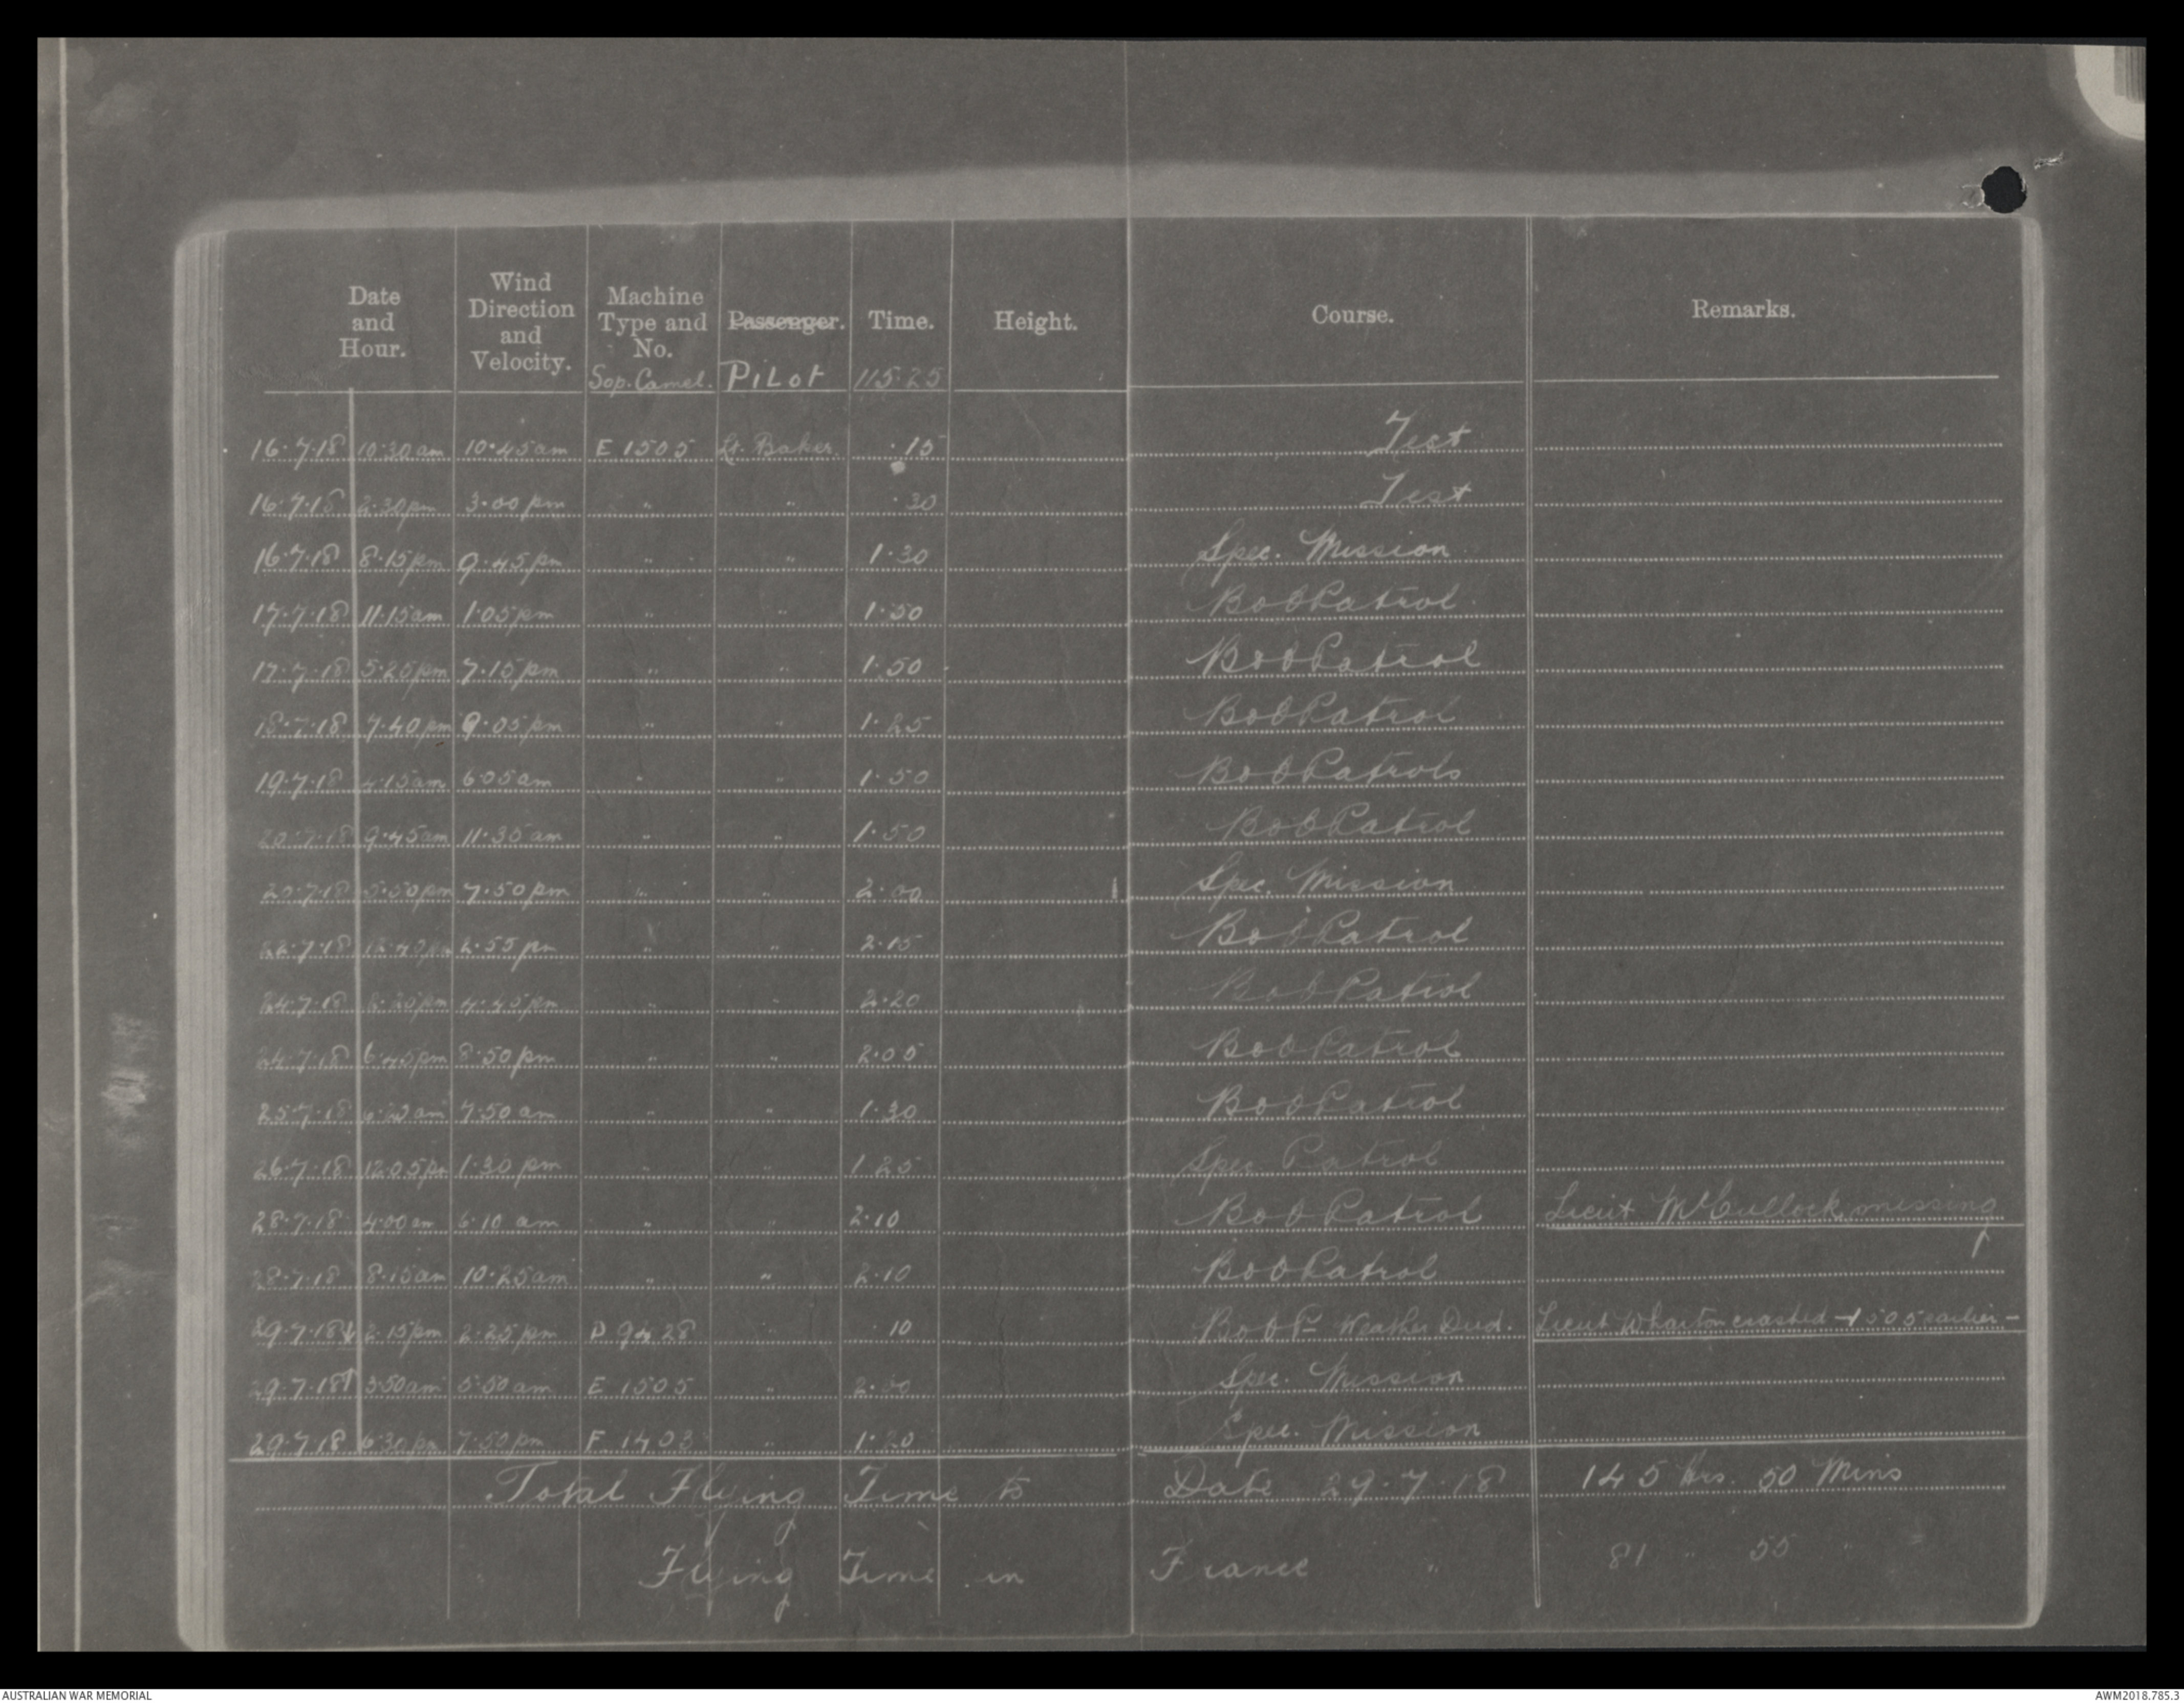 Date and Hour. Wind Direction and Velocity. Machine Type and No. Passenger. Time. Height. Course. Remarks.
Sop. Camel. PiLot 115·25
16·7·18 10·30 am 10·45 am E 1505 Lt. Baker ·15 Test
16·7·18 2·30 pm 3·00 pm " " ·30 Test
16·7·18 8·15 pm 9·45 pm " " 1·30 Spec. Mission
17·7·18 11·15 am 1·05 pm " " 1·50 BobPatrol
17·7·18 5·25 pm 7·15 pm " " 1·50 BobPatrol
18·7·18 7·40 pm 9·05 pm " " 1·25 BobPatrol
19·7·18 4·15 am 6·05 am " " 1·50 BobPatrols
20·7·18 9·45 am 11·35 am " " 1·50 BobPatrol
20·7·18 5·50 pm 7·50 pm " " 2·00 Spec. Mission
12·40 pm 2·55 pm " " 2·15 BobPatrol
24·7·18 4·45 pm " " 2·20 BobPatrol
24·7·18 6·45 pm 8·50 pm " " 2·05 BobPatrol
25·7·18 6·20 am 7·50 am " " 1·30 BobPatrol
26·7·18 12·05 pm 1·30 pm " " 1·25 Spec Patrol
28·7·18 4·00 am 6·10 am " " 2·10 BobPatrol Lieut McCullock missing
28·7·18 8·15 am 10·25 am " " 2·10 BobPatrol
29·7·18 2·15 pm 2·25 pm D 9428 " ·10 BobP— Weather Dud. Lieut Wharton crashed 1505 earlier —
29·7·18 3·50 am 5·50 am E 1505 " 2·00 Spec. Mission
29·7·18 6·30 pm 7·50 pm F 1403 " 1·20 Spec. Mission
Total Flying Time to Date 29·7·18 145 Hrs. 50 Mins
Flying Time in France " 81 " 55 "
AUSTRALIAN WAR MEMORIAL AWM2018.785.3